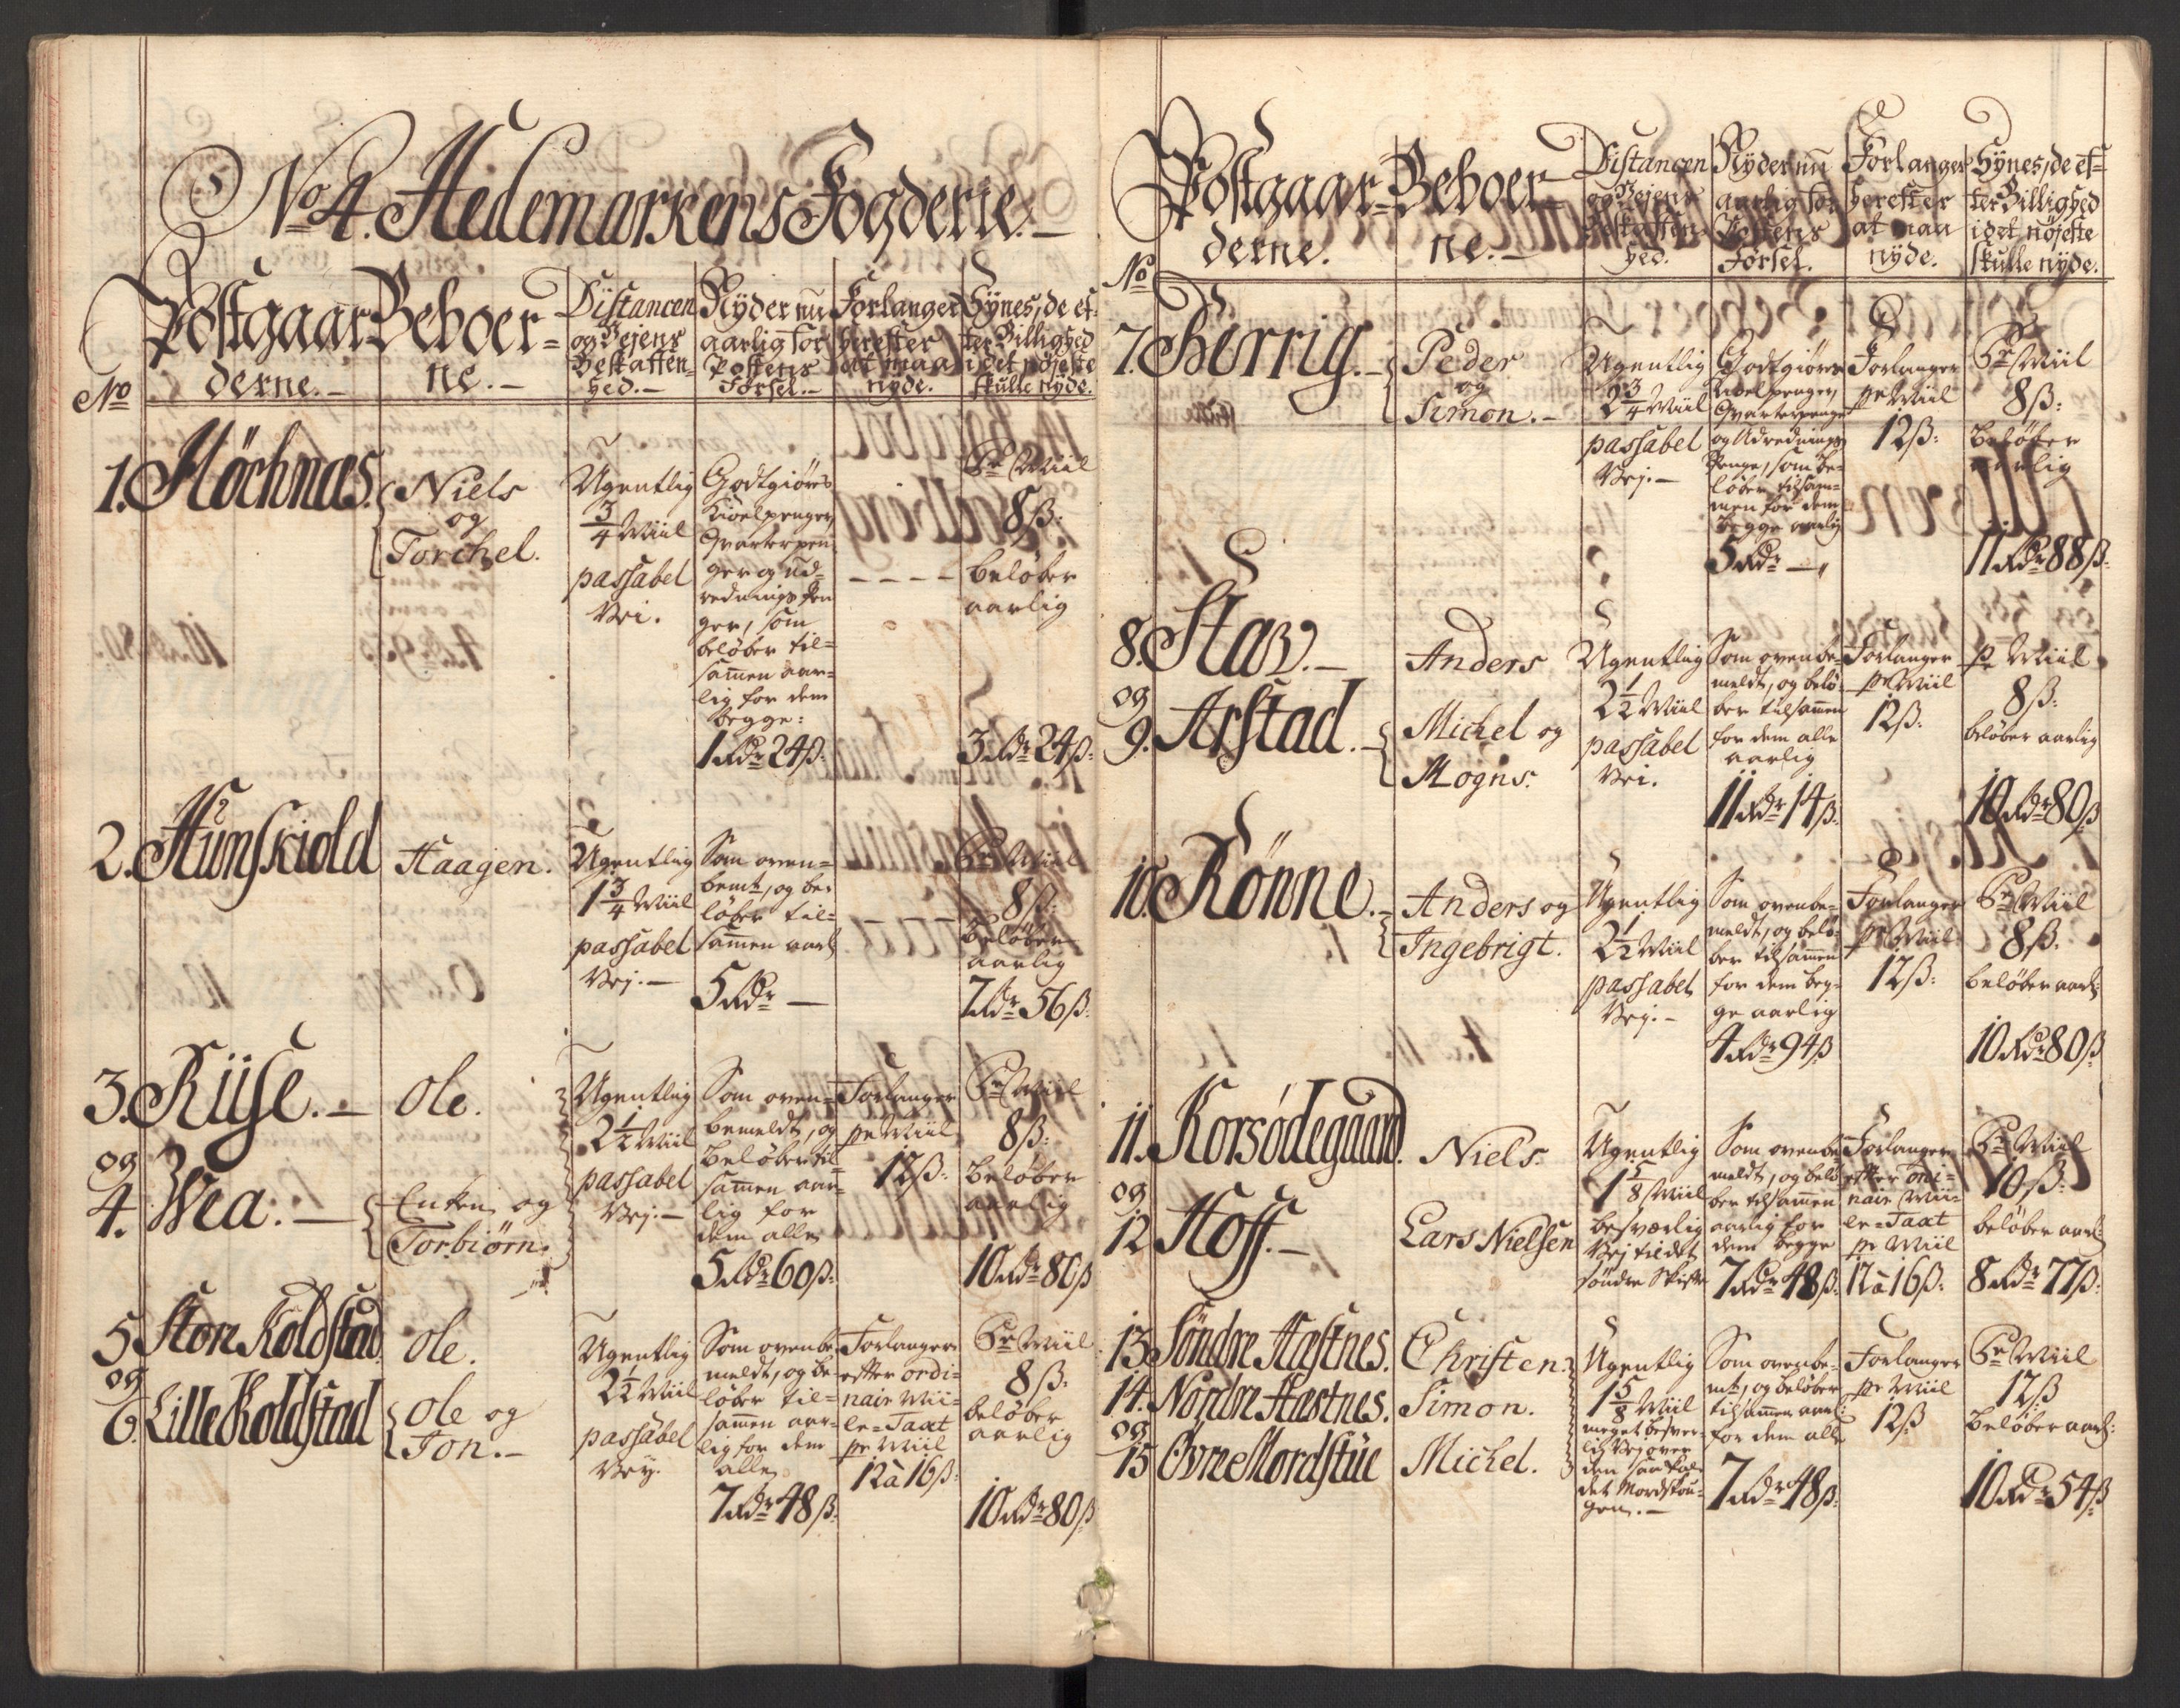 No 4. Hedemarkens Fogderie.-
No
Postgaar-
derne.-
Beboer=
ne.-
Distancen
og Vejens
Beskaffen=
hed.-
Nyder nu
aarlig for
Postens
Førsel.-
Forlanger
herefter
at maa
nyde.
Synes, de ef-
ter Billighed
i det nøjeste
skulle nyde.
1. Höchnæs.
Niels
og
Torchel.
Ugentlig
3/4 Miil
passabel
Vei.
Godtgiøres
Qvarterpen
ger og Ud=
rednings Pen
ger, som
beløber til=
sammen aar=
lig for dem
begge:
1 Rdr 24 ß.
- - - -
Pr Miil
8 ß:
beløber
aarlig
3 Rdr 24 ß:
2. Hunskiold
Haagen.
Ugentlig
1 3/4 Miil
passabel
Vej.-
Som oven=
bemt, og be=
løber til=
sammen aarl
5 Rdr -
Pr Miil
8 ß:
Beløber
aarlig
7 Rdr 56 ß.
3. Riise.-
og
4. Wea.-
Ole.
Enken og
Torbiörn.
Ugentlig
2 1/2 Miil
passabel
Vej.-
Som oven=
bemeldt, og
beløber til=
sammen aar=
lig for
dem alle
5 Rdr 60 ß.
Forlanger
pr Miil
12 ß:
Pr Miil
8 ß:
beløber
aarlig
10 Rdr 80 ß
5 Store Koldstad
og
6. Lille Koldstad
Ole.
Ole og
Jon.-
Ugentlig
2 1/2 Miil
passabel
Vej.
Som ovenbe=
meldt, og be=
løber til=
sammen aar=
lig for dem
alle
7 Rdr 48 ß.
Forlanger
efter ordi=
nair Mii=
le=Taxt
pr Miil
12 à 16 ß.
Pr Miil
8 ß.
beløber
aarlig
10 Rdr 80 ß
No
Postgaar=
derne.
Beboer=
ne.-
Distancen
og Vejens
Beskaffen
hed.
Nyder nu
aarlig for
Postens
Førsel.
Forlanger
herefter
at maa
nyde.
Synes, de ef=
ter Billighed
i det nøjeste
skulle nyde.
7. Herrig.-
Peder
og
Simon.-
Ugentlig
2 3/4 Miil
passabel
Vej.-
Godtgiøres
Qvarterpenge
og Udrednings
Penge, som be=
løber tilsam=
men for dem
begge aarlig
5 Rdr -"
Forlanger
pr Miil
12 ß:
Pr Miil
8 ß:
beløber
aarlig
11 Rdr 88 ß.
8. Stav.-
og
9. Arstad.-
Anders
Michel og
Mogns.
Ugentlig
2 1/2 Miil
passabel
Vei.
Som ovenbe=
meldt, og belø=
ber tilsammen
for dem alle
aarlig
11 Rdr 14 ß.
Forlanger
pr Miil
12 ß:
pr Miil
8 ß:
beløber aarlig
10 Rdr 80 ß
10. Rönne.-
Anders og
Ingebrigt.
Ugentlig
2 1/2 Miil
passabel
Vej.-
Som ovenbe=
meldt, og belø=
ber tilsammen
for dem beg=
ge aarlig
4 Rdr 94 ß
Forlanger
pr Miil
12 ß:
Pr Miil
8 ß.
beløber aarl:
10 Rdr 80 ß
11. Korsödegaard.
og
12 Hoff.-
Niels.
Lars Nielsen
Ugentlig
1 5/8 Miil
besværlig
Vej til det
söndre Skifte
Som ovenbe=
meldt, og belø
ber tilsammen
aarlig for
dem begge
7 Rdr 48 ß.
Forlanger
efter ordi=
nair Mii=
le=Taxt
pr Miil
12 à 16 ß.
Pr Miil
10 ß:
beløber aarl:
8 Rdr 77 ß.
13 Söndre Hæstnes.
14. Nordre Hæstnes.
og
15 Övre Mordstue
Christen.
Simon.
Michel.
Ugentlig
1 5/8 Miil
meget besver=
lig Vej over
den saa kal=
det Mordskou=
gen.-
Som ovenbe=
mt, og beløber
tilsammen aarl:
for dem alle
7 Rdr 48 ß.
Forlanger
pr Miil
12 ß
Pr Miil
12 ß
beløber aarl:
10 Rdr 54 ß